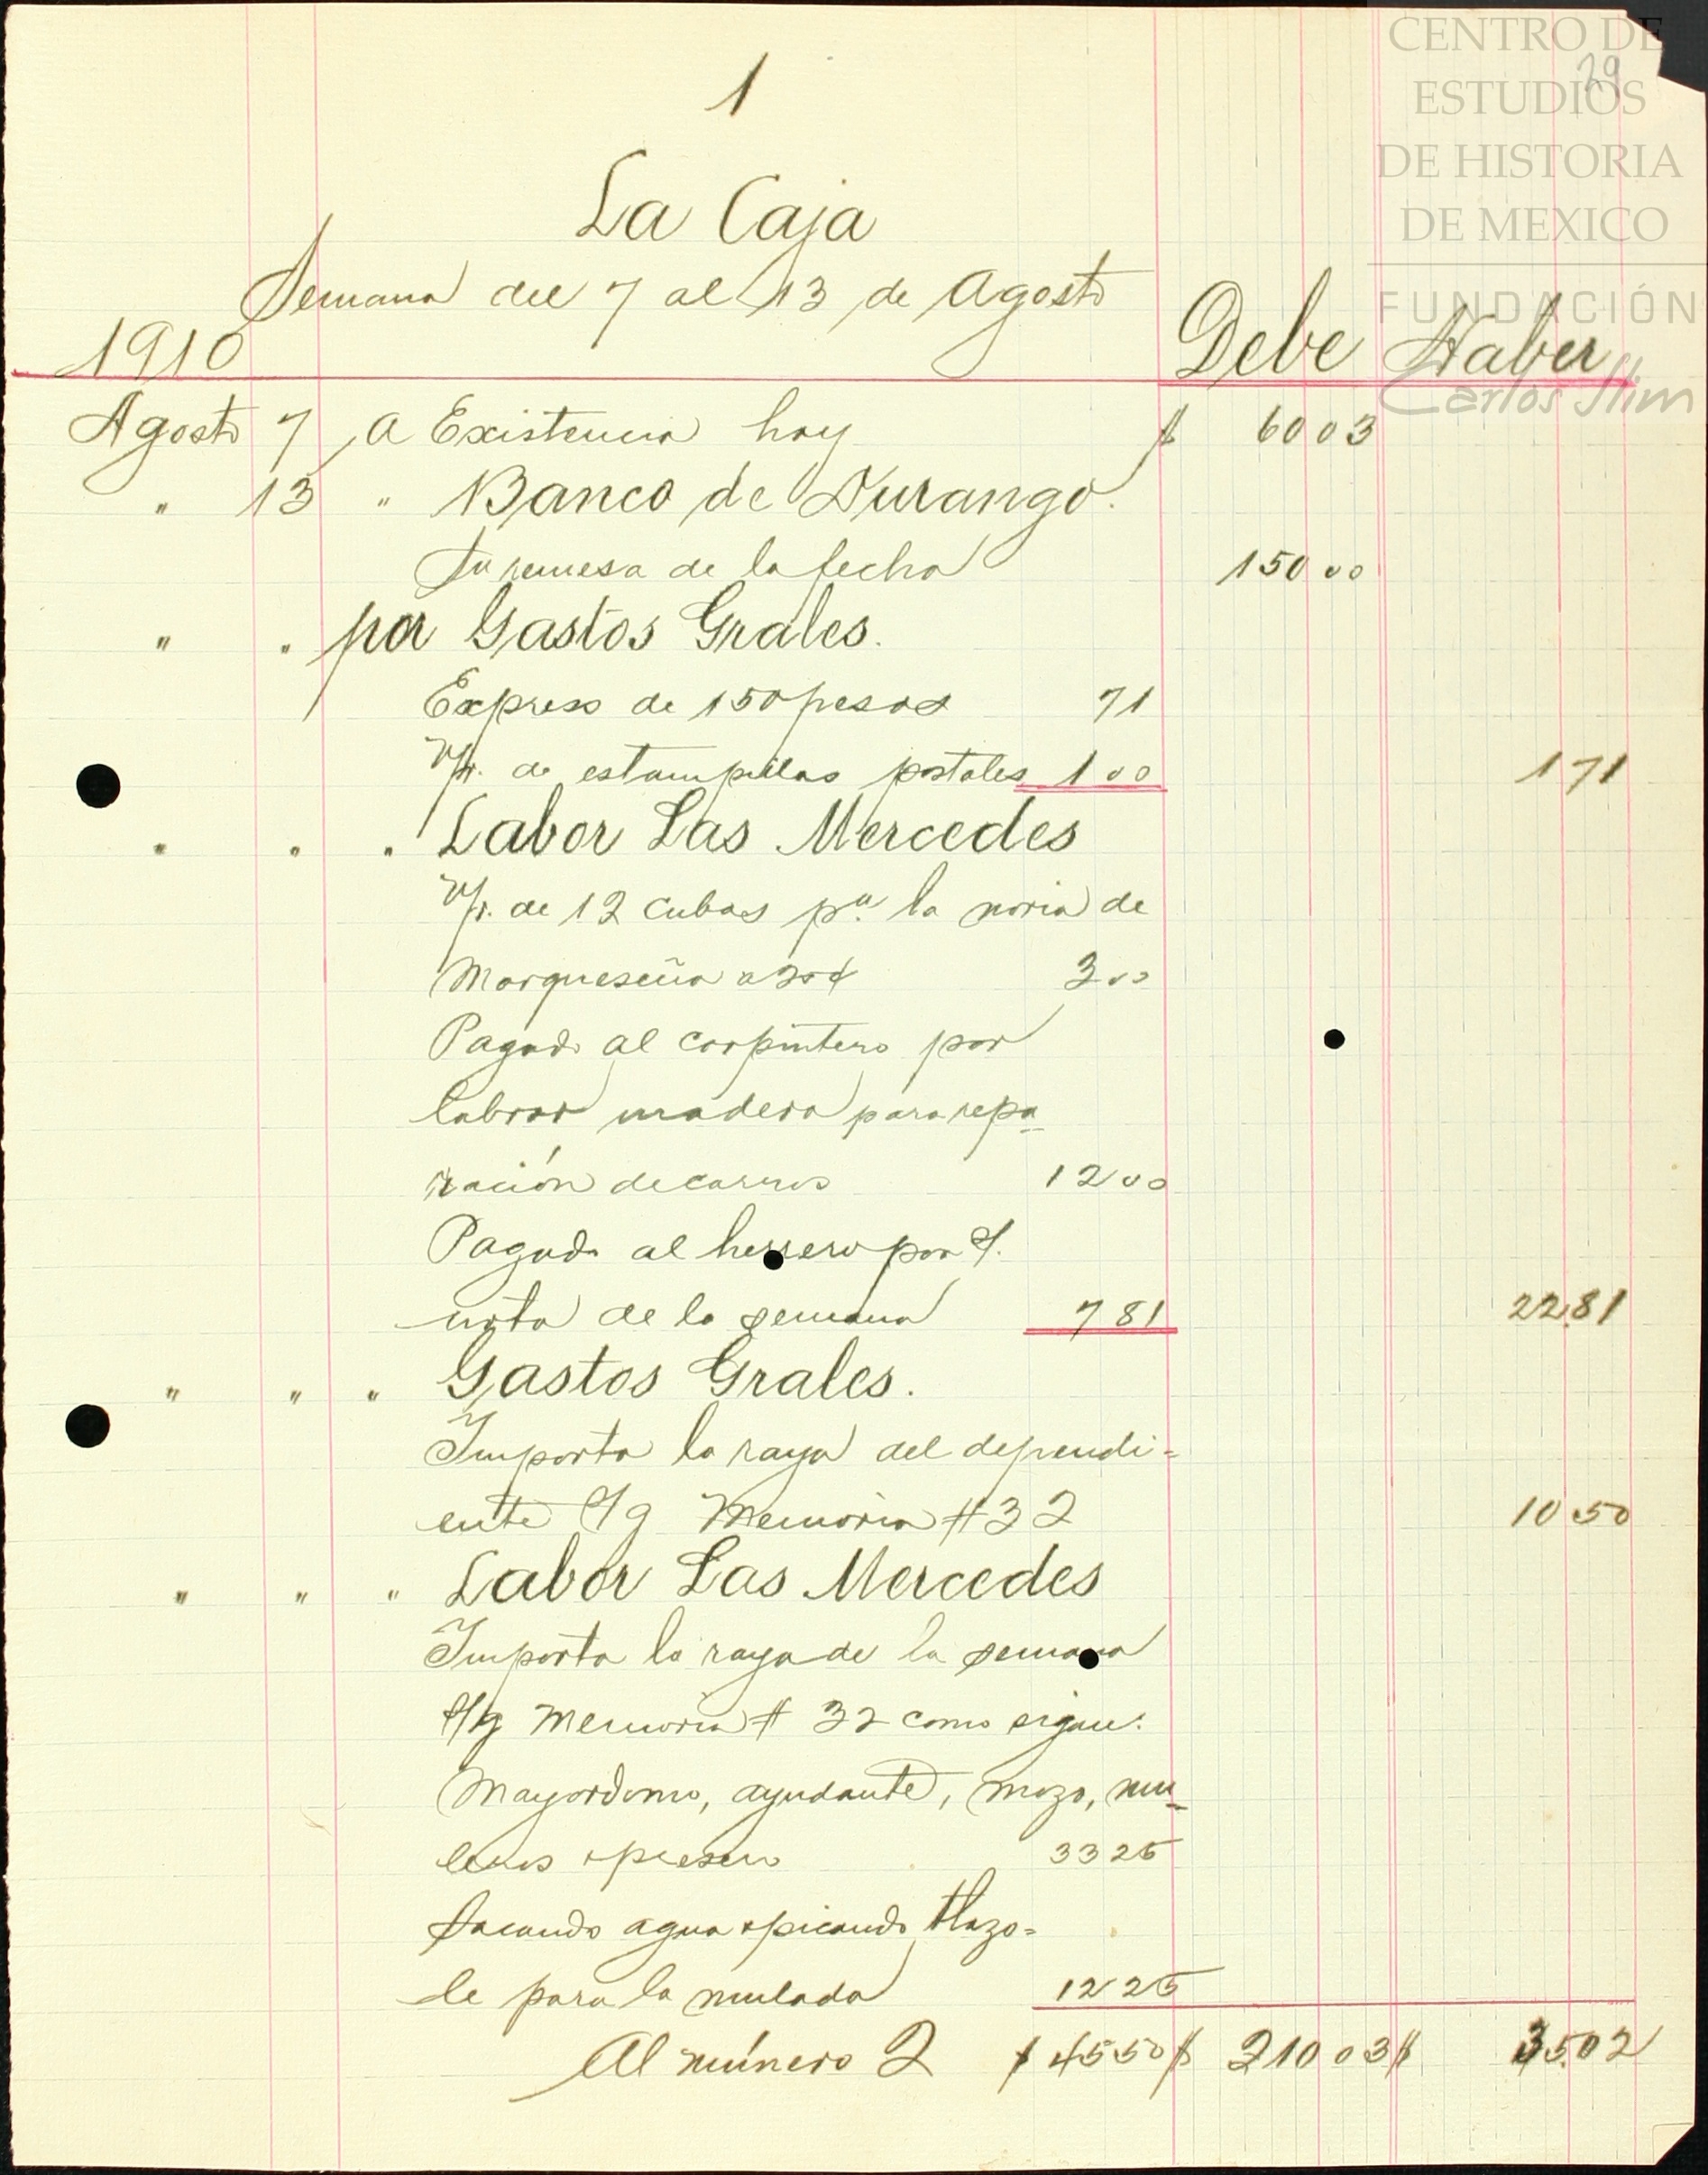 CENTRO DE
ESTUDIOS
DE HISTORIA
DE MEXICO
FUNDACIÓN
Carlos Slim
29
1
La Caja
Semana del 7 al 13 de Agosto
1910 Debe Haber
Agosto 7 a Existencia hoy $ 60 03
" 13 " Banco de Durango.
Su remesa de la fecha 150 00
" " por Gastos Grales.
Expreso de 150 pesos 71
V/r. de estampillas postales 1 00 1 71
" " " Labor Las Mercedes
V/r. de 12 cubas pa. la noria de
Marqueseña a 25¢ 3 00
Pagado al carpintero por
labrar madera para repa-
ración de carros 12 00
Pagado al herrero por s/.
nota de la semana 7 81 22 81
" " " Gastos Grales.
Importa la raya del dependi=
ente s/g Memoria # 32 10 50
" " " Labor Las Mercedes
Importa la raya de la semana
s/g Memoria # 32 como sigue:
Mayordomo, ayudante, mozo, mu-
leros y presero 33 25
Sacando agua y picando tlazo=
le para la mulada 12 25
Al número 2 $ 45 50 $ 210 03 $ 35.02